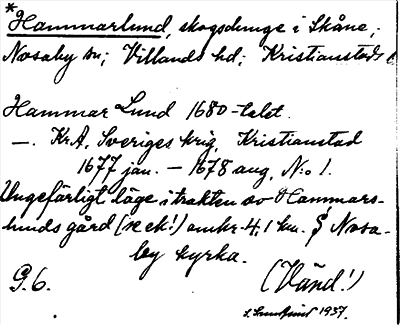 * Hammarlund, skogsdunge i Skåne;
Nosaby sn; Villands hd; Kristianstads
Hammar Lund 1680-talet.
—. KrA, Sveriges krig, Kristianstad
1677 jan. – 1678 aug, N:o 1.
Ungefärligt läge i trakten av Hammars-
lunds gård (se ek!) omkr. 4,1 km. S Nosa-
by kyrka.
G. 6. (Vänd!)
1937.